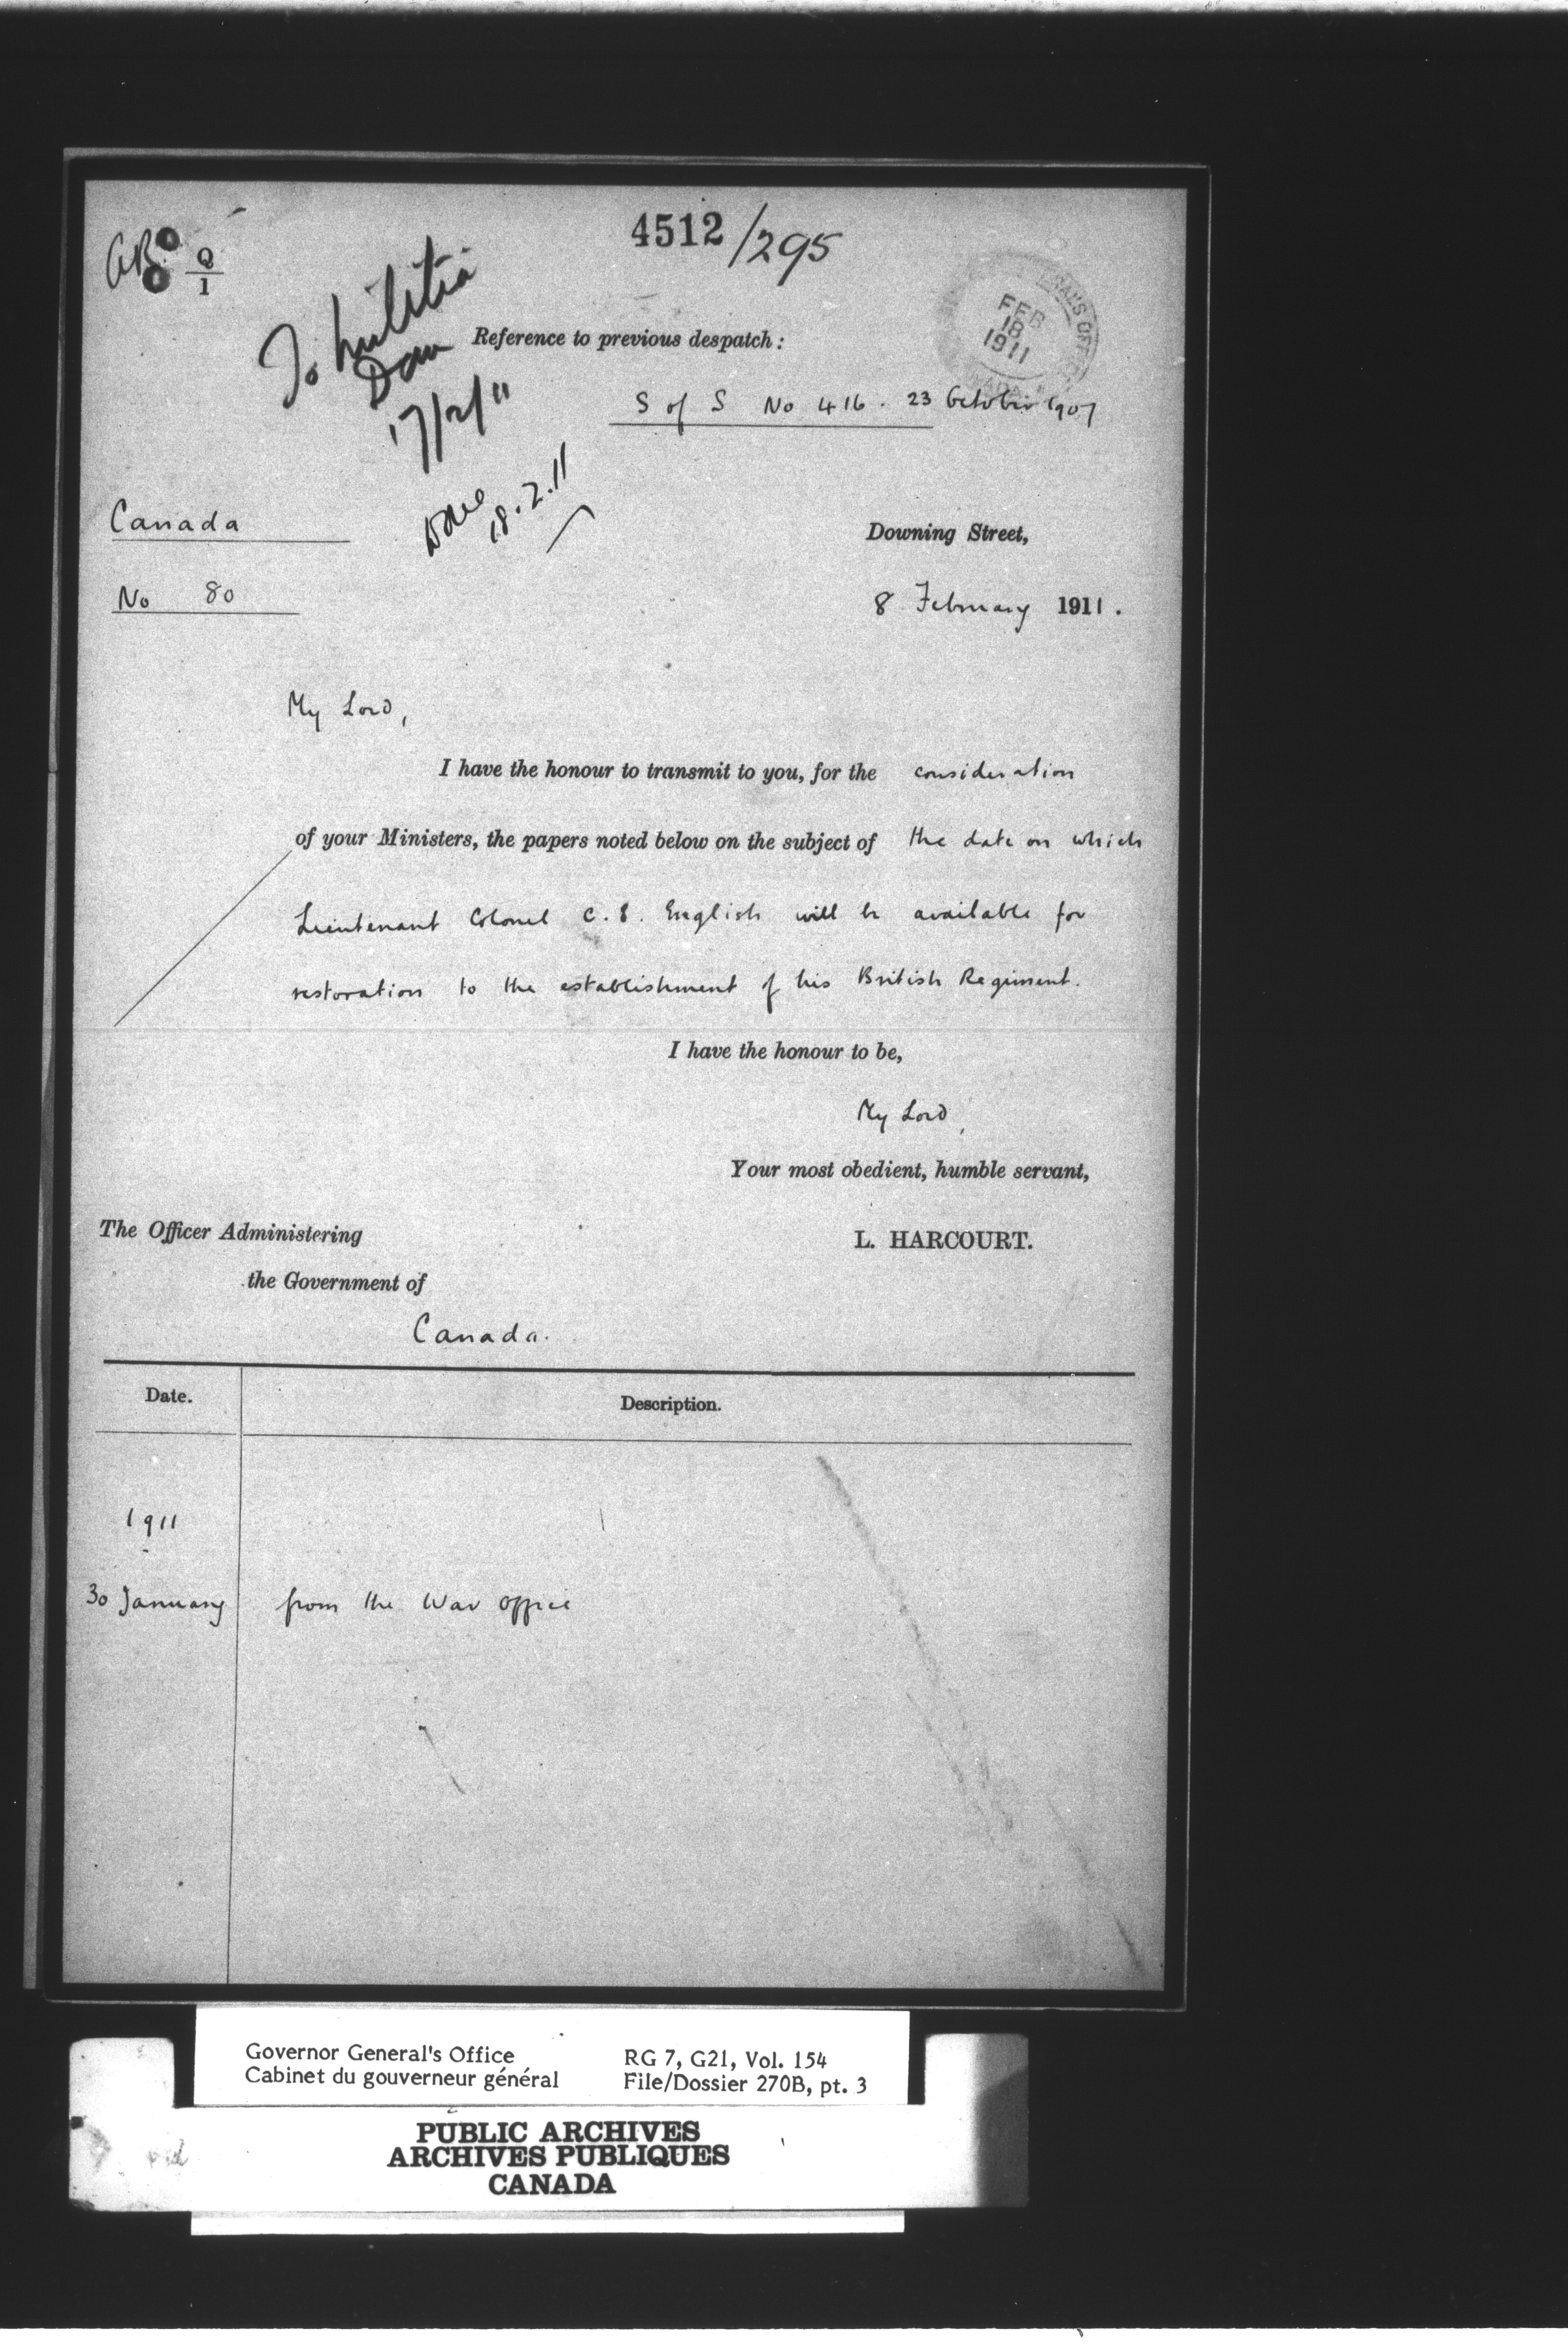 4512/295
Q
1
To Militia
Dom
17/2/11
Done
18.2.11
FEB
18
1911
Reference to previous despatch:
S of S No 416. 23 October 1907
Canada
No 80
Downing Street,
8 February 1911.
My Lord,
I have the honour to transmit to you, for the consideration
of your Ministers, the papers noted below on the subject of the date on which
Lieutenant Colonel C. E. English will be available for
restoration to the establishment of his British Regiment.
I have the honour to be,
My Lord,
Your most obedient, humble servant,
L. HARCOURT.
The Officer Administering
the Government of
Canada.
Date. Description.
1911
30 January from the War Office
Governor General's Office RG 7, G21, Vol. 154
Cabinet du gouverneur général File/Dossier 270B, pt. 3
PUBLIC ARCHIVES
ARCHIVES PUBLIQUES
CANADA